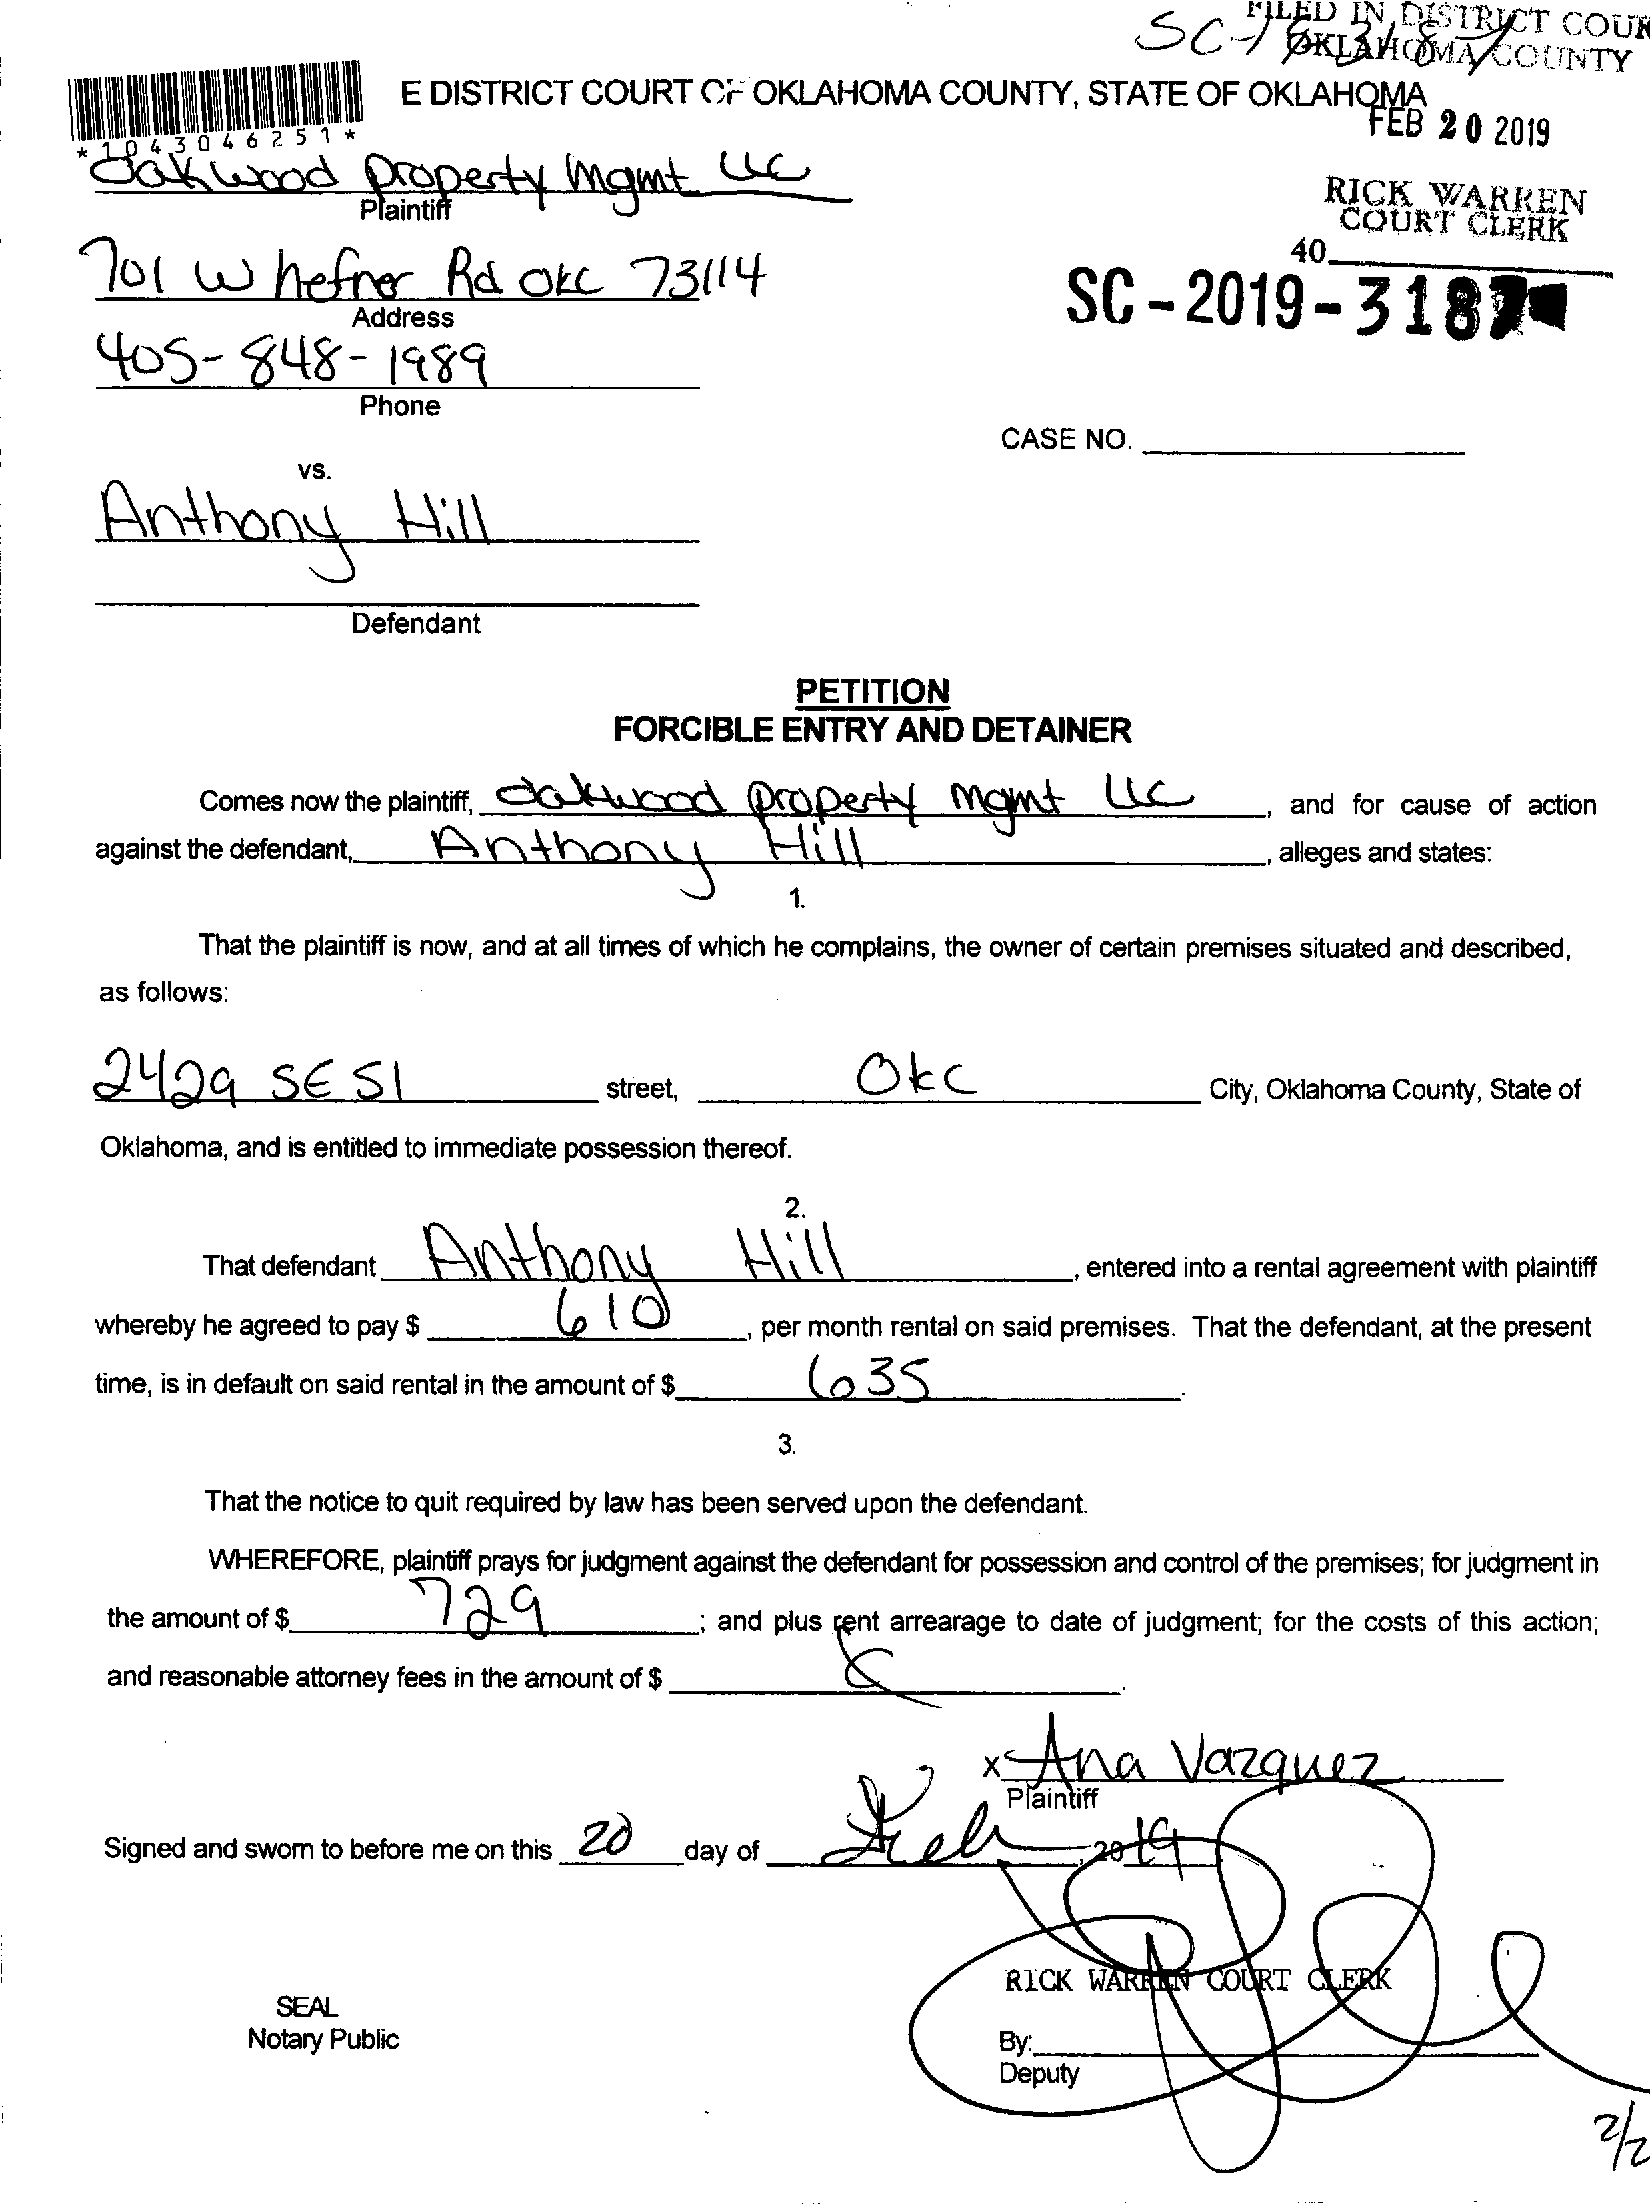 FILED IN DISTRICT COUR
OKLAHOMA COUNTY
E DISTRICT COURT OF OKLAHOMA COUNTY, STATE OF OKLAHOMA
FEB 20 2019
*1043046251*
Oakwood Property Mgmt LLC
Plaintiff
RICK WARREN
COURT CLERK
40
701 W hefner Rd OKC 73114
Address
SC-2019-3187
405-848-1989
Phone
CASE NO.
vs.
Anthony Hill
Defendant
PETITION
FORCIBLE ENTRY AND DETAINER
Comes now the plaintiff, Oakwood Property Mgmt LLC, and for cause of action
against the defendant, Anthony Hill, alleges and states:
1.
That the plaintiff is now, and at all times of which he complains, the owner of certain premises situated and described,
as follows:
2429 SE 51 street, OKC City, Oklahoma County, State of
Oklahoma, and is entitled to immediate possession thereof.
2.
That defendant Anthony Hill, entered into a rental agreement with plaintiff
whereby he agreed to pay $ 610, per month rental on said premises. That the defendant, at the present
time, is in default on said rental in the amount of $ 635.
3.
That the notice to quit required by law has been served upon the defendant.
WHEREFORE, plaintiff prays for judgment against the defendant for possession and control of the premises; for judgment in
the amount of $ 729; and plus rent arrearage to date of judgment; for the costs of this action;
and reasonable attorney fees in the amount of $
x Ana Vazquez
Plaintiff
Signed and sworn to before me on this 20 day of Feb, 2019
RICK WARREN COURT CLERK
SEAL
Notary Public
By:
Deputy